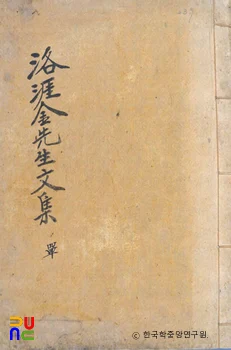 洛涯金先生文集
單
ⓒ 한국학중앙연구원.